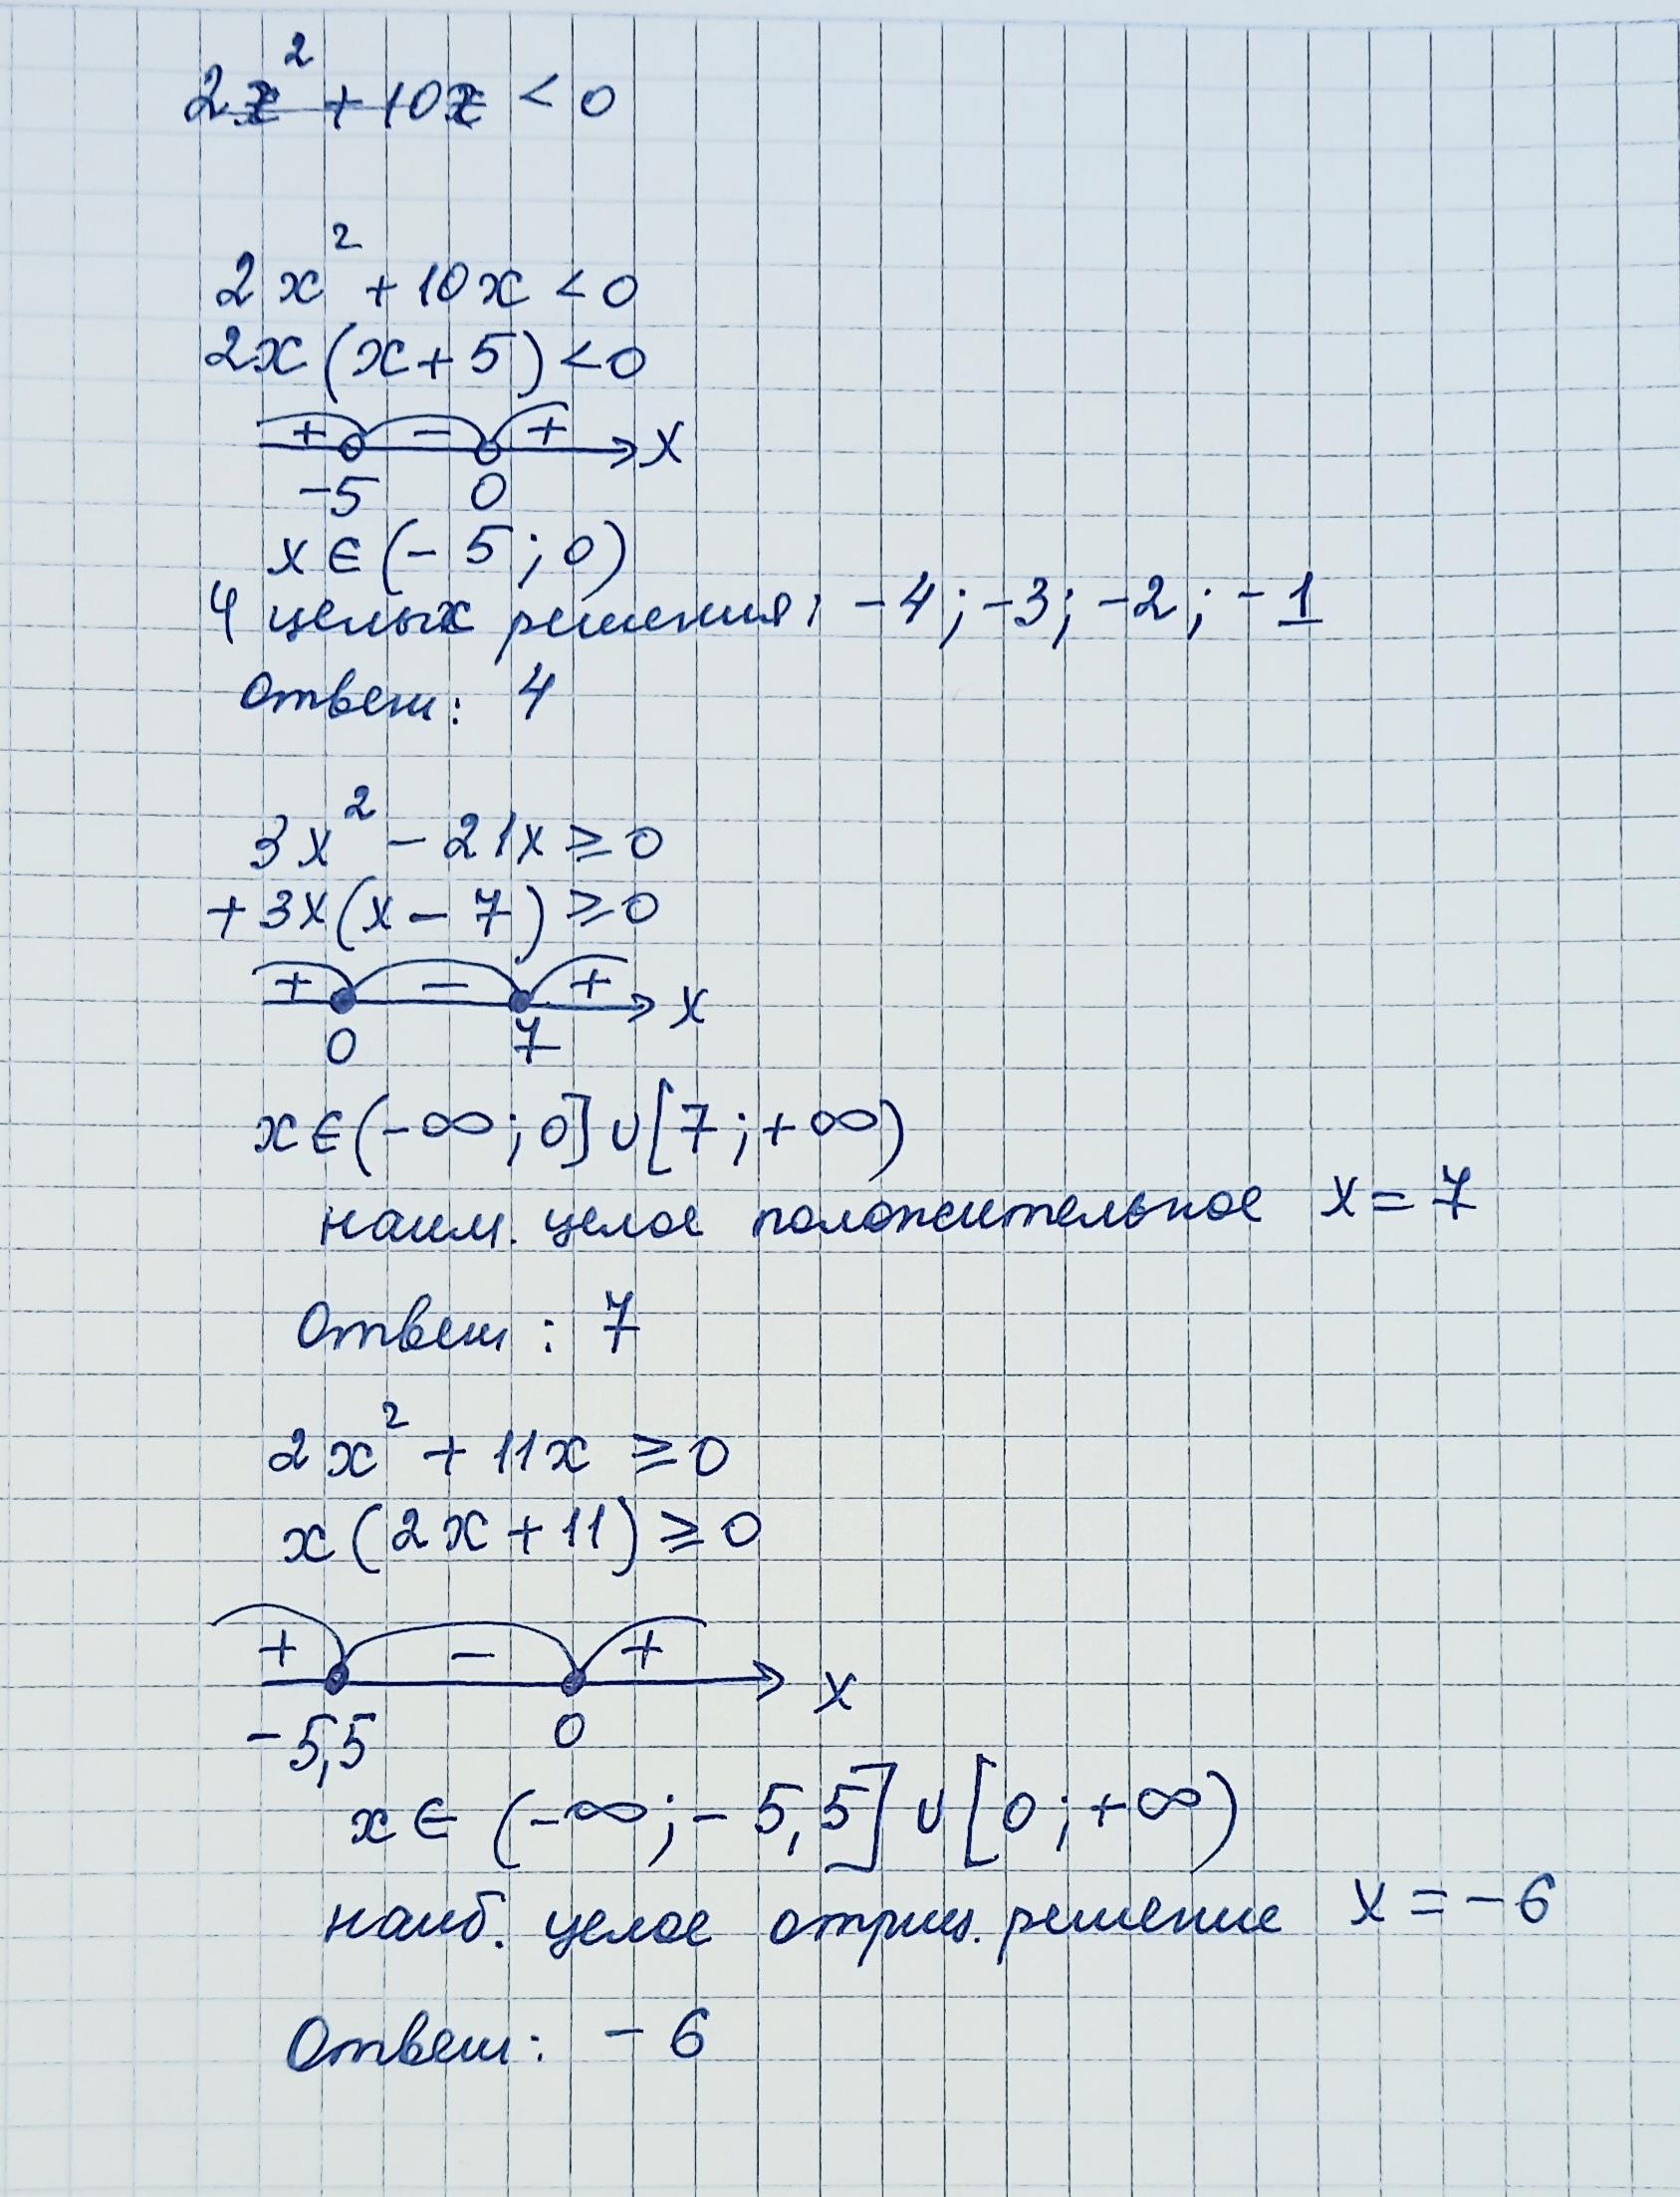 2x² + 10x < 0
2x² + 10x < 0
2x(x + 5) < 0
+ − + x
−5 0
x ∈ (−5; 0)
4 целых решения: −4; −3; −2; −1
Ответ: 4
3x² − 21x ⩾ 0
+ 3x(x − 7) ⩾ 0
+ − + x
0 7
x ∈ (−∞; 0] ∪ [7; +∞)
наим. целое положительное x = 7
Ответ: 7
2x² + 11x ⩾ 0
x(2x + 11) ⩾ 0
+ − + x
−5,5 0
x ∈ (−∞; −5,5] ∪ [0; +∞)
наиб. целое отриц. решение x = −6
Ответ: −6